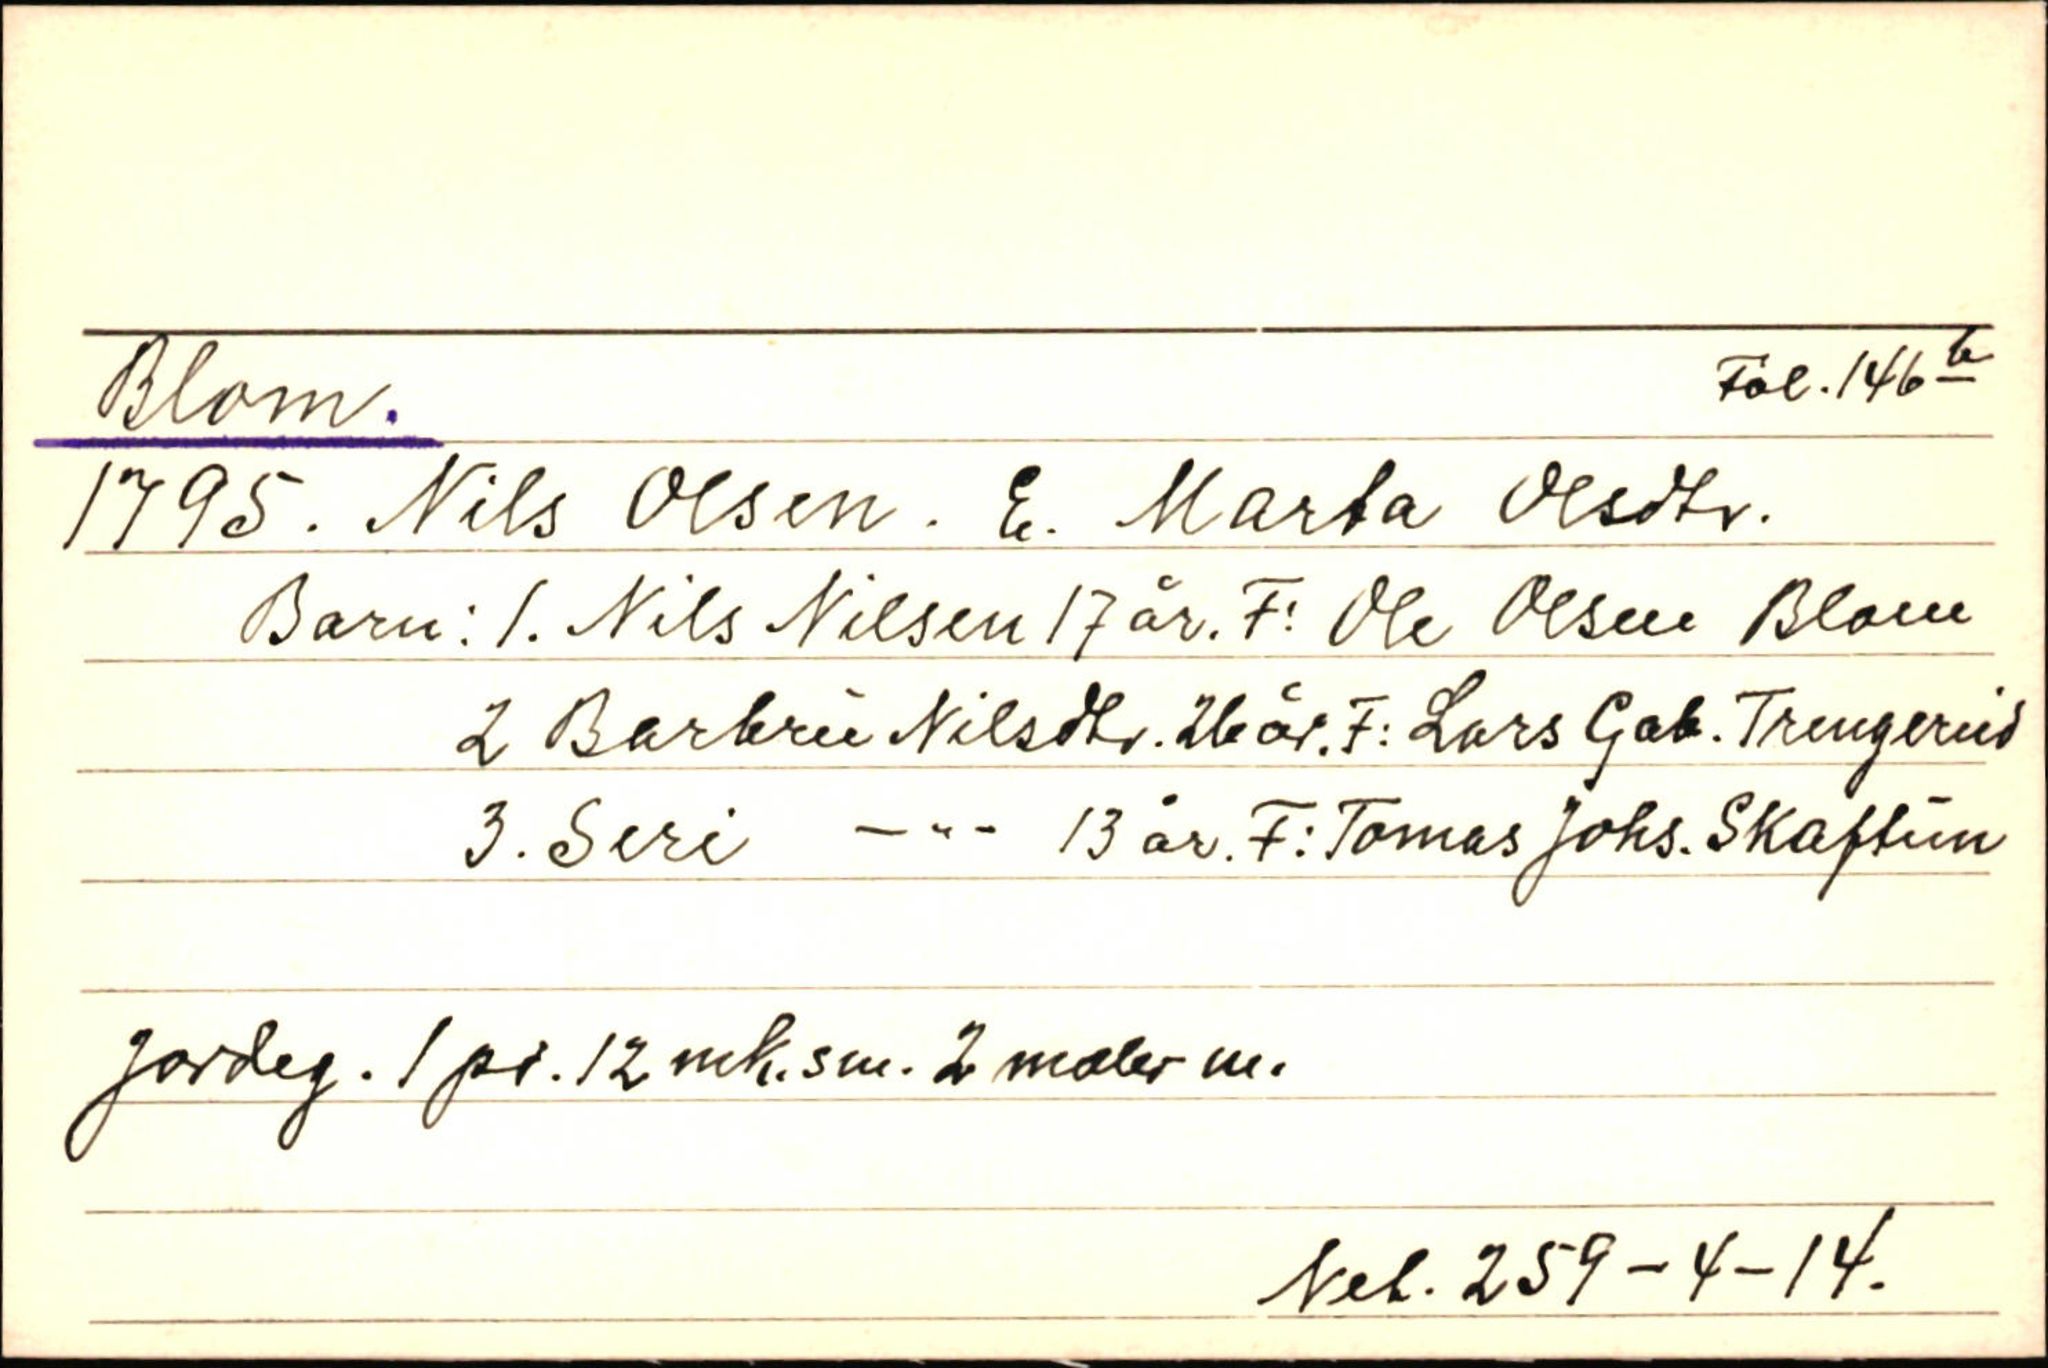 Blom. Fol. 146 b
1795. Nils Olsen. E. Marta Olsdtr.
Barn: 1. Nils Nilsen 17 år. F: Ole Olsen Blom
2 Barbru Nilsdtr. 26 år. F: Lars Gab. Trengerud
3. Seri —"— 13 år. F: Tomas Johs. Skaftun
Jordeg. 1 pd. 12 mk. sm. 2 mæler m.
Net. 259-4-14.